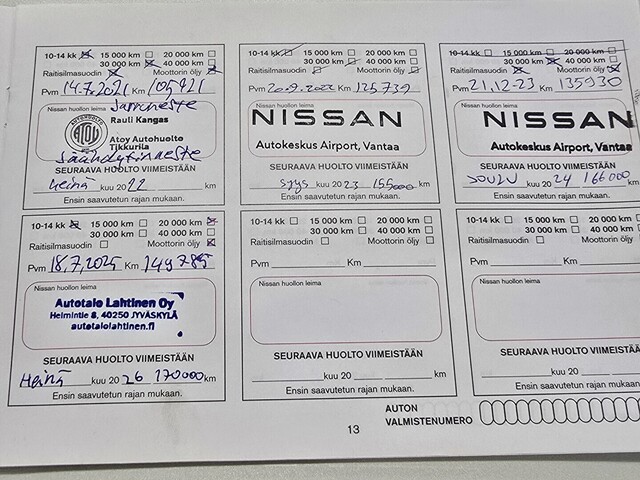 10-14 kk ☒ 15 000 km ☐ 20 000 km ☐
30 000 km ☒ 40 000 km ☐
Raitisilmasuodin ☒ Moottorin öljy ☒
Pvm 14.7.2021 Km 105921
Nissan huollon leima
Jarruneste
Rauli Kangas
AUTOHUOLTO
ATOY
Atoy Autohuolto
Tikkurila
Jäähdytinneste
SEURAAVA HUOLTO VIIMEISTÄÄN
heinä kuu 2022 km
Ensin saavutetun rajan mukaan.
10-14 kk ☒ 15 000 km ☐ 20 000 km ☐
30 000 km ☒ 40 000 km ☐
Raitisilmasuodin ☒ Moottorin öljy ☒
Pvm 20.9.2022 Km 125739
Nissan huollon leima
NISSAN
Autokeskus Airport, Vantaa
SEURAAVA HUOLTO VIIMEISTÄÄN
syys kuu 2023 155000 km
Ensin saavutetun rajan mukaan.
10-14 kk ☒ 15 000 km ☐ 20 000 km ☐
30 000 km ☒ 40 000 km ☐
Raitisilmasuodin ☒ Moottorin öljy ☒
Pvm 21.12.23 Km 135930
Nissan huollon leima
NISSAN
Autokeskus Airport, Vantaa
SEURAAVA HUOLTO VIIMEISTÄÄN
JOULU kuu 2024 166000 km
Ensin saavutetun rajan mukaan.
10-14 kk ☒ 15 000 km ☐ 20 000 km ☒
30 000 km ☐ 40 000 km ☐
Raitisilmasuodin ☐ Moottorin öljy ☒
Pvm 18.7.2025 Km 149785
Nissan huollon leima
Autotalo Lahtinen Oy
Helmintie 8, 40250 JYVÄSKYLÄ
autotalolahtinen.fi
SEURAAVA HUOLTO VIIMEISTÄÄN
Heinä kuu 2026 170000 km
Ensin saavutetun rajan mukaan.
10-14 kk ☐ 15 000 km ☐ 20 000 km ☐
30 000 km ☐ 40 000 km ☐
Raitisilmasuodin ☐ Moottorin öljy ☐
Pvm Km
Nissan huollon leima
SEURAAVA HUOLTO VIIMEISTÄÄN
kuu 20 km
Ensin saavutetun rajan mukaan.
10-14 kk ☐ 15 000 km ☐ 20 000 km ☐
30 000 km ☐ 40 000 km ☐
Raitisilmasuodin ☐ Moottorin öljy ☐
Pvm Km
Nissan huollon leima
SEURAAVA HUOLTO VIIMEISTÄÄN
kuu 20 km
Ensin saavutetun rajan mukaan.
AUTON
VALMISTENUMERO
13